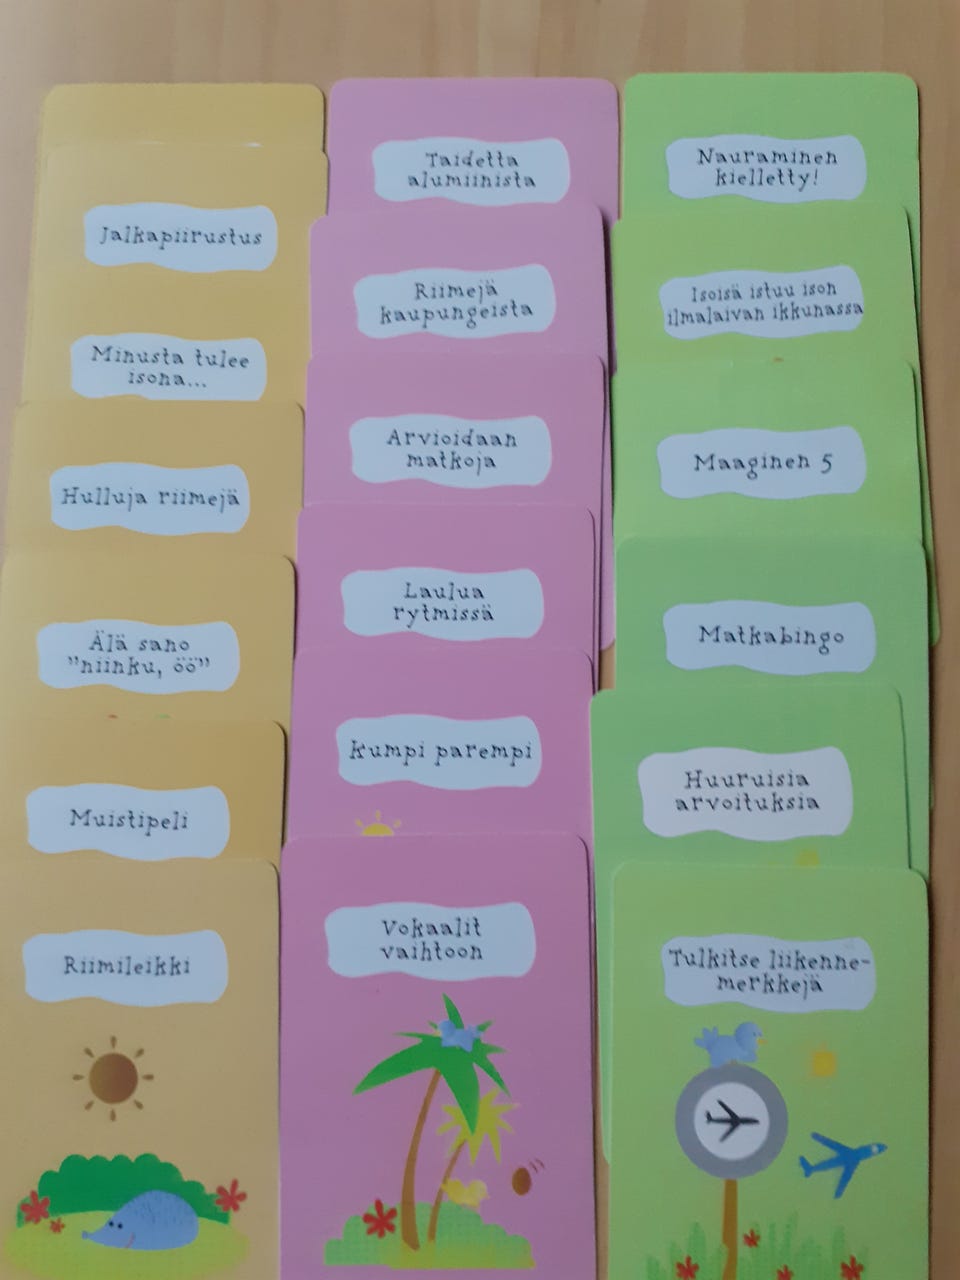 Jalkapiirustus
Minusta tulee
isona...
Hulluja riimejä
Älä sano
"niinku, öö"
Muistipeli
Riimileikki
Taidetta
alumiinista
Riimejä
kaupungeista
Arvioidaan
matkoja
Laulua
rytmissä
Kumpi parempi
Vokaalit
vaihtoon
Nauraminen
kielletty!
Isoisä istuu ison
ilmalaivan ikkunassa
Maaginen 5
Matkabingo
Huuruisia
arvoituksia
Tulkitse liikenne-
merkkejä